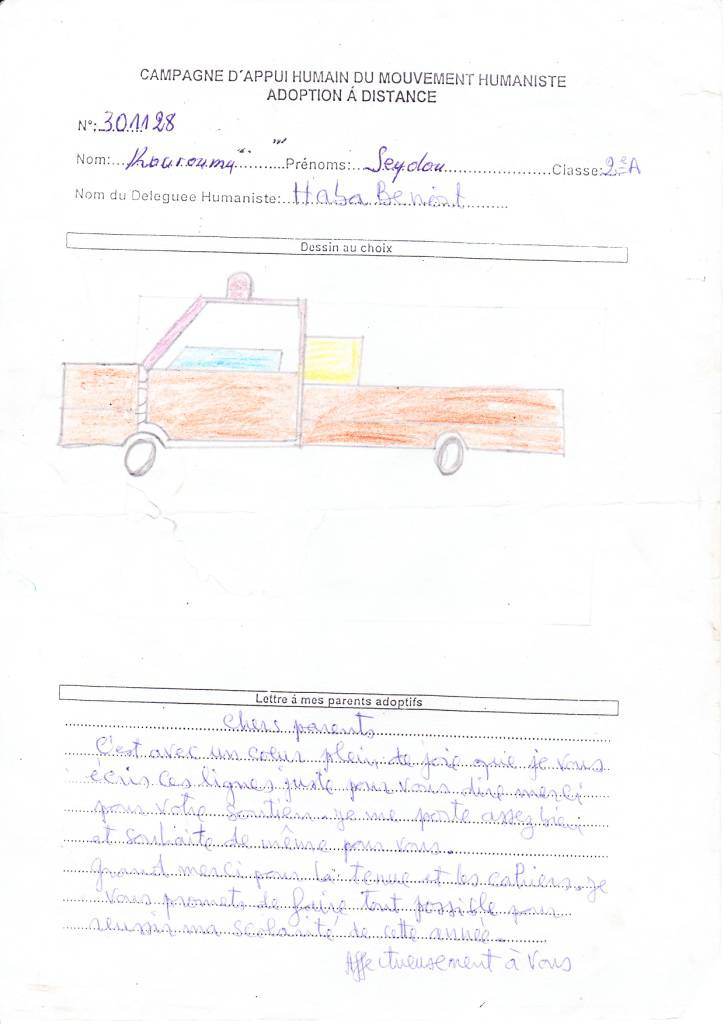 CAMPAGNE D'APPUI HUMAIN DU MOUVEMENT HUMANISTE
ADOPTION Á DISTANCE
N°: 301128
Nom:... Kourouma ...Prénoms:... Seydou ...Classe: 2e A
Nom du Deleguee Humaniste:... Haba Benoit
Dessin au choix
Lettre á mes parents adoptifs
Chers parents
C'est avec un coeur plein de joie que je vous
écris ces lignes juste pour vous dire merci
pour votre soutien. je me porte assez bien
et souhaite de même pour vous.
Grand merci pour la tenue et les cahiers. je
vous promets de faire tout possible pour
reussir ma scolarité de cette année.
Affectueusement à vous